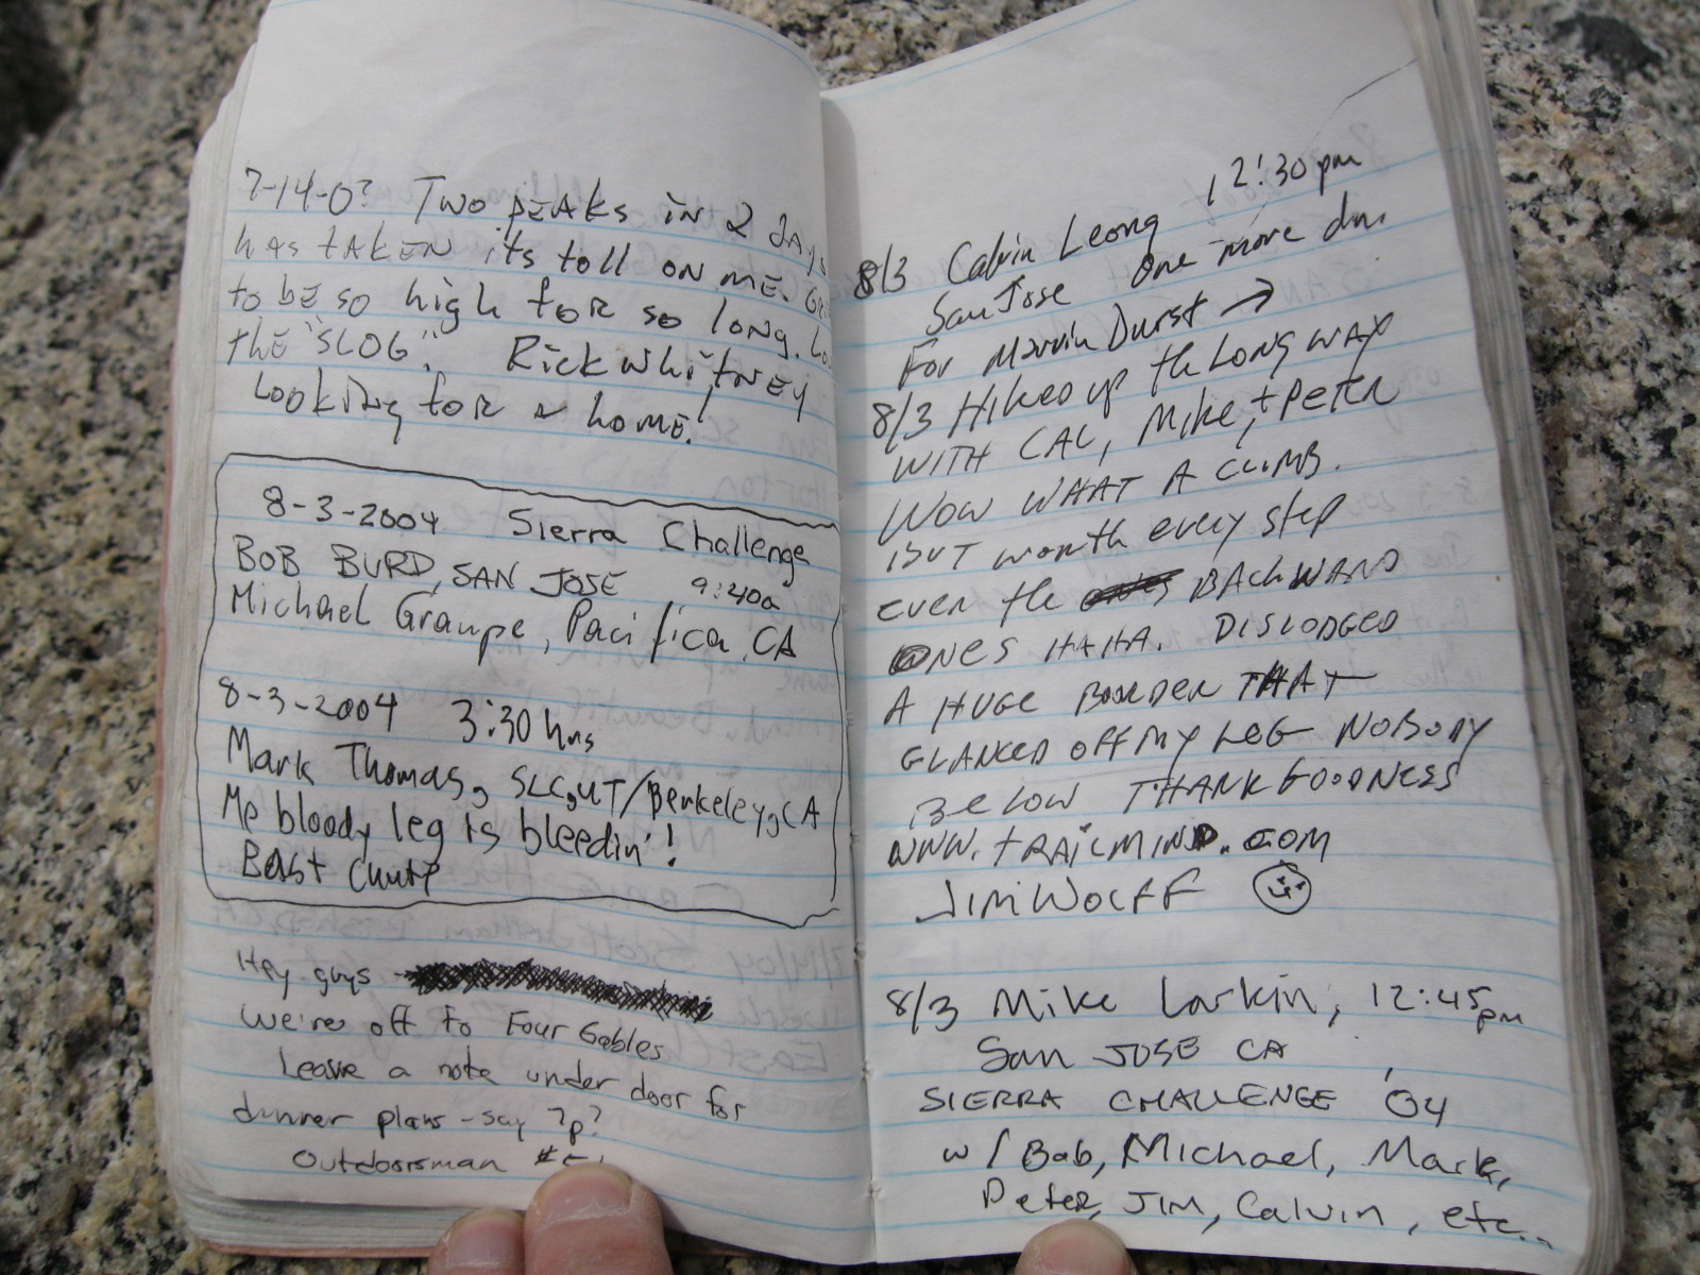 7-14-0? Two peaks in 2 days
has taken its toll on me.
to be so high for so long.
the "SLOG". Rick Whitney
Looking for a home!
8-3-2004 Sierra Challenge
BOB BURD, SAN JOSE 9:40a
Michael Graupe, Pacifica, CA
8-3-2004 3:30 hrs
Mark Thomas, SLC, UT/Berkeley, CA
Me bloody leg is bleedin'!
East Chute
Hey guys
We're off to Four Gables
Leave a note under door for
dinner plans - say 7p?
Outdoorsman
8/3 Calvin Leong 12:30 pm
San Jose One more
For Marvin Durst →
8/3 Hiked up the LONG WAY
WITH CAL, Mike, + Peter
WOW WHAT A CLIMB.
BUT worth every step
even the BACKWARD
ONES HAHA. DISLODGED
A HUGE BOULDER THAT
GLANCED OFF MY LEG NOBODY
BELOW THANK GOODNESS
WWW.TRAILMIND.COM
JIM WOLFF
8/3 Mike Larkin, 12:45 pm
San JOSE CA
SIERRA CHALLENGE '04
w/ Bob, Michael, Mark,
Peter, JIM, Calvin, etc..